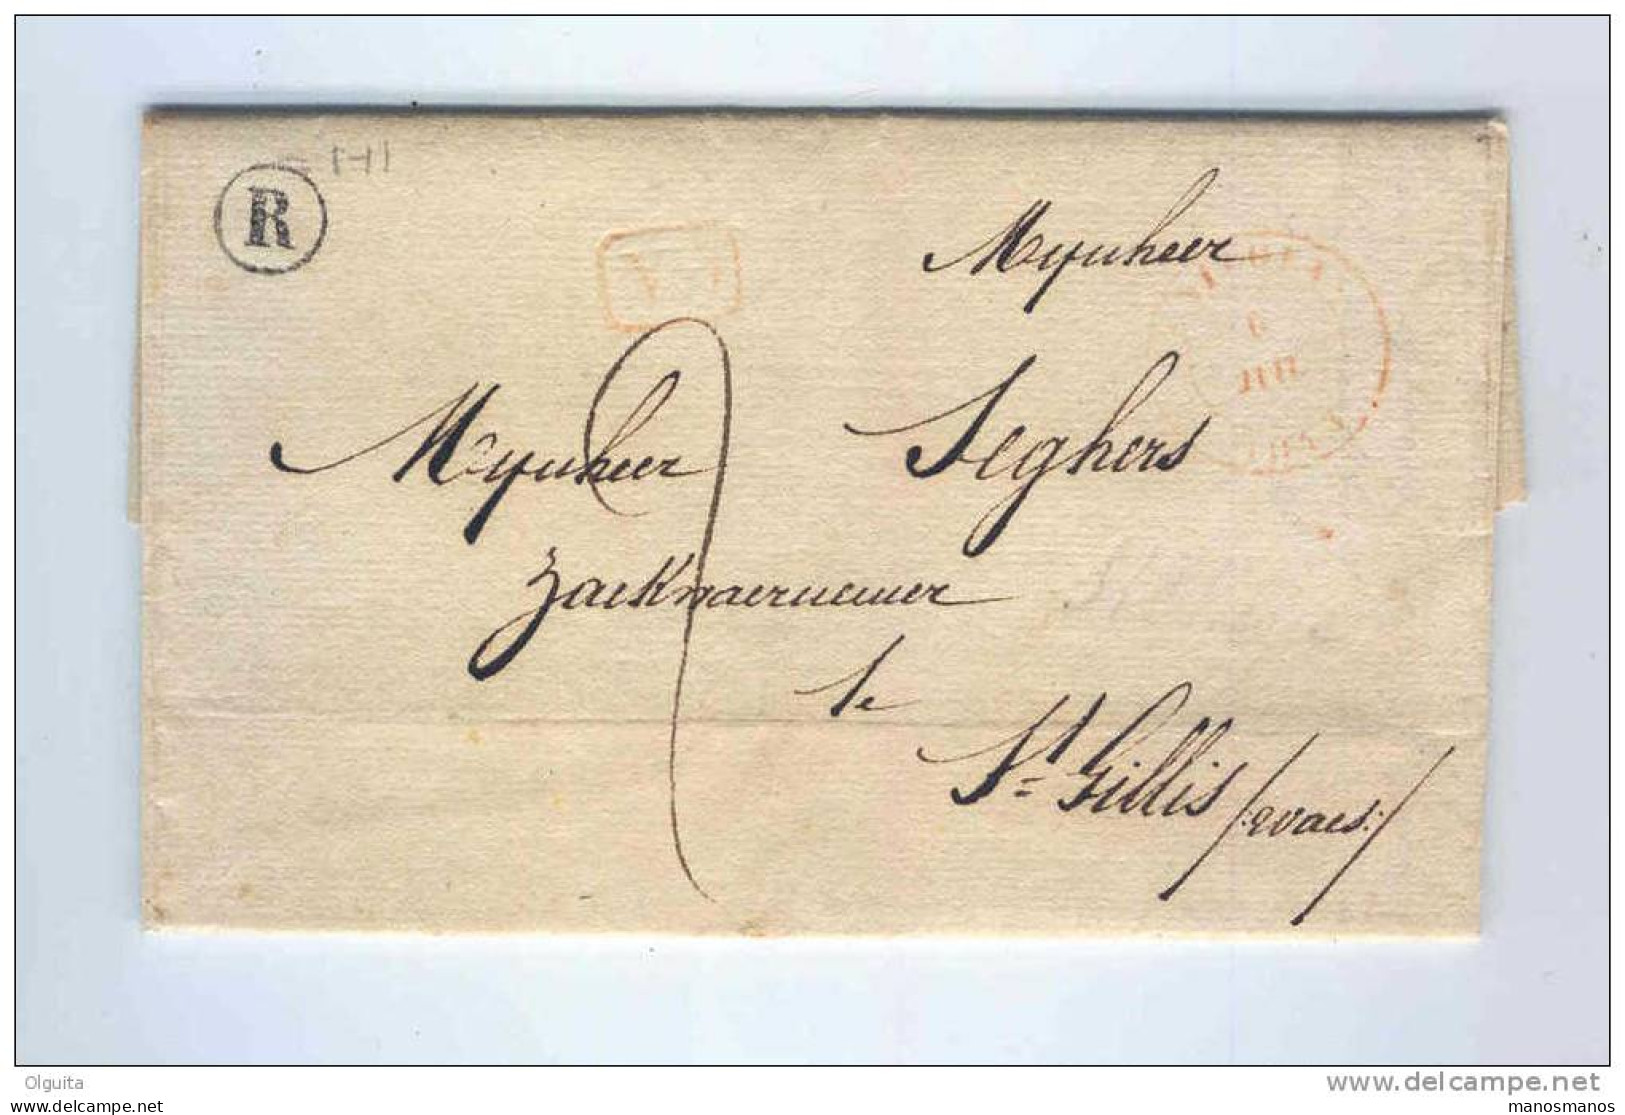 R
Mynheer
Mynheer Seghers
Zaekwaernemer
te
St Gillis /:Waes:/
6
JUIL
Olguita
www.delcampe.net
manosmanos